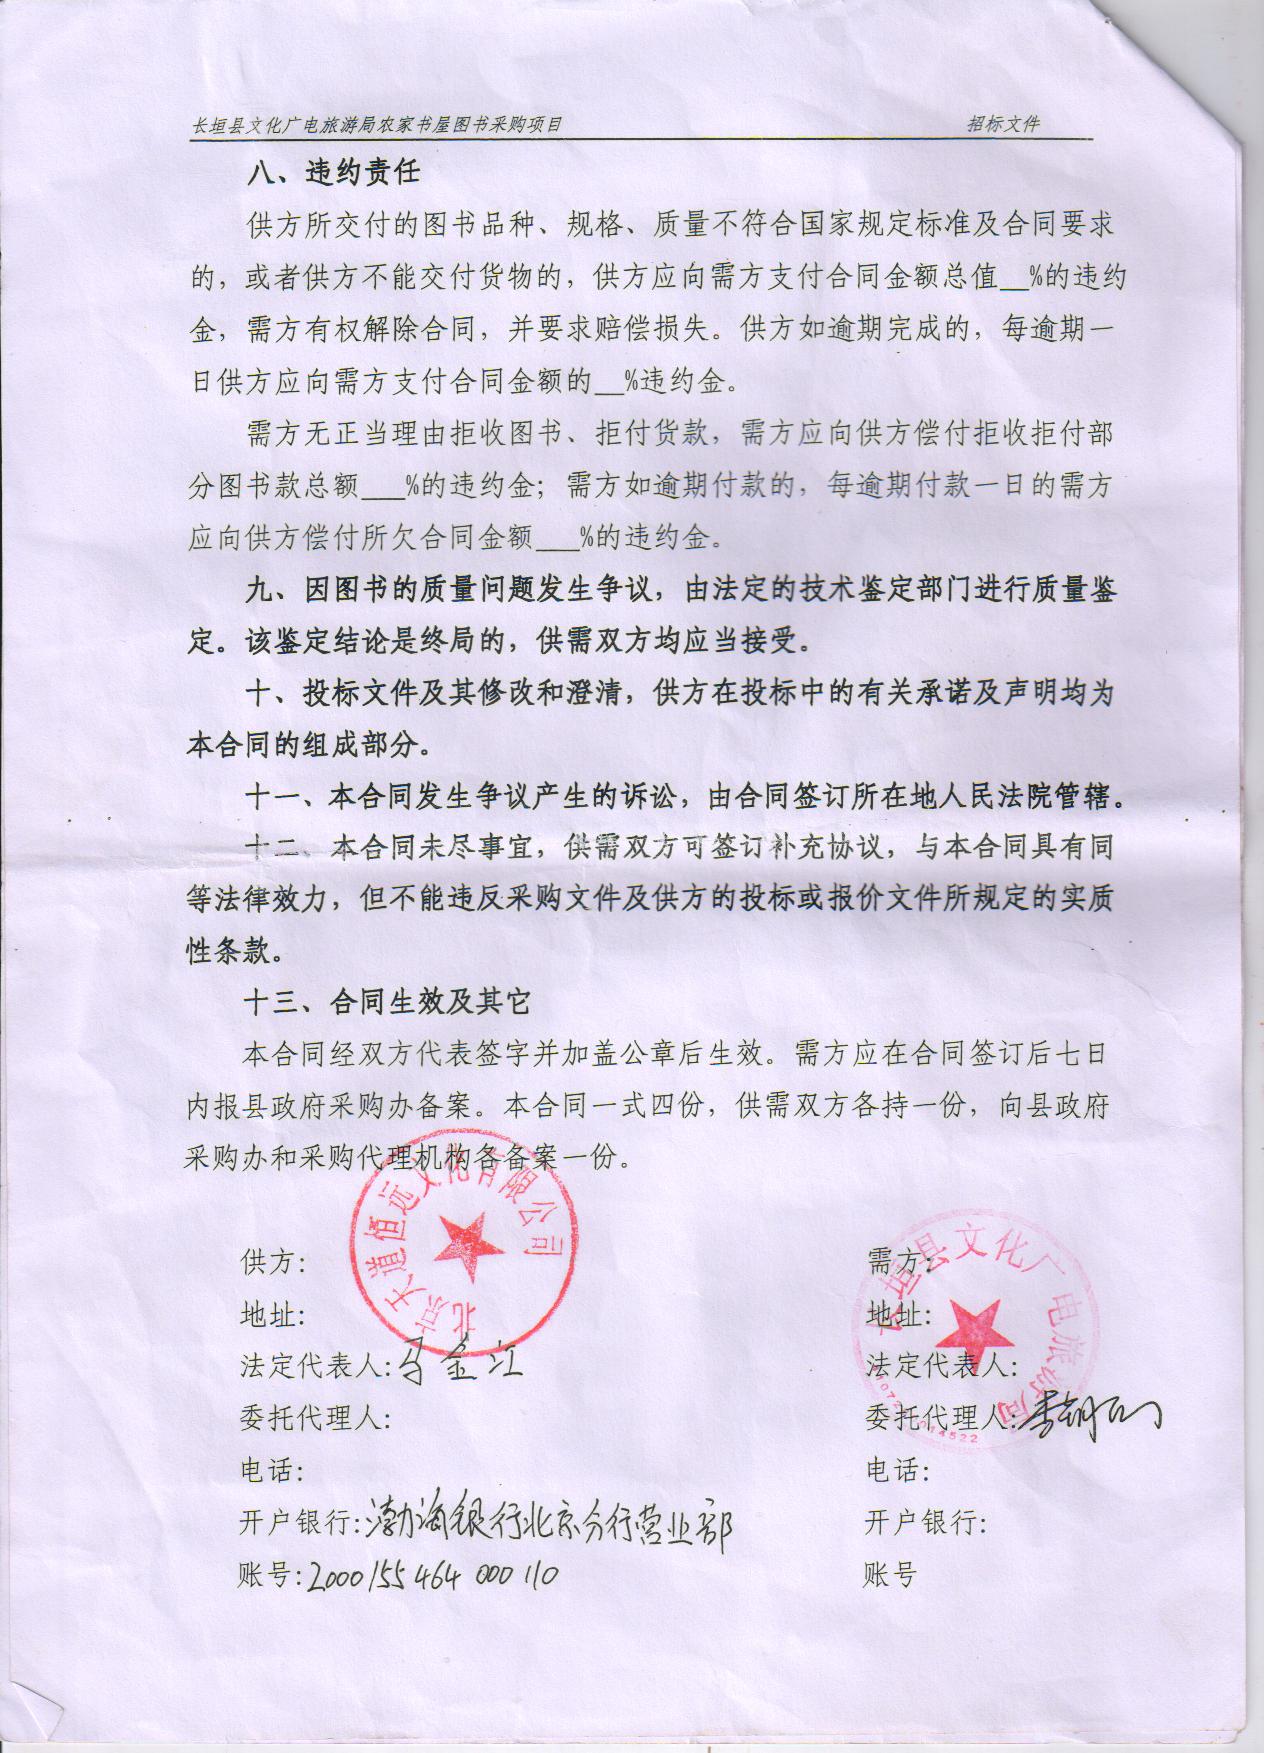 长垣县文化广电旅游局农家书屋图书采购项目 招标文件
八、违约责任
供方所交付的图书品种、规格、质量不符合国家规定标准及合同要求
的，或者供方不能交付货物的，供方应向需方支付合同金额总值__%的违约
金，需方有权解除合同，并要求赔偿损失。供方如逾期完成的，每逾期一
日供方应向需方支付合同金额的__%违约金。
需方无正当理由拒收图书、拒付货款，需方应向供方偿付拒收拒付部
分图书款总额___%的违约金；需方如逾期付款的，每逾期付款一日的需方
应向供方偿付所欠合同金额___%的违约金。
九、因图书的质量问题发生争议，由法定的技术鉴定部门进行质量鉴
定。该鉴定结论是终局的，供需双方均应当接受。
十、投标文件及其修改和澄清，供方在投标中的有关承诺及声明均为
本合同的组成部分。
十一、本合同发生争议产生的诉讼，由合同签订所在地人民法院管辖。
十二、本合同未尽事宜，供需双方可签订补充协议，与本合同具有同
等法律效力，但不能违反采购文件及供方的投标或报价文件所规定的实质
性条款。
十三、合同生效及其它
本合同经双方代表签字并加盖公章后生效。需方应在合同签订后七日
内报县政府采购办备案。本合同一式四份，供需双方各持一份，向县政府
采购办和采购代理机构各备案一份。
北京大道恒远文化有限公司
长垣县文化广电旅游局
供方： 需方：
地址： 地址：
法定代表人：马金江 法定代表人：
委托代理人： 委托代理人：
电话： 电话：
开户银行：渤海银行北京分行营业部 开户银行：
账号：2000155464000110 账号